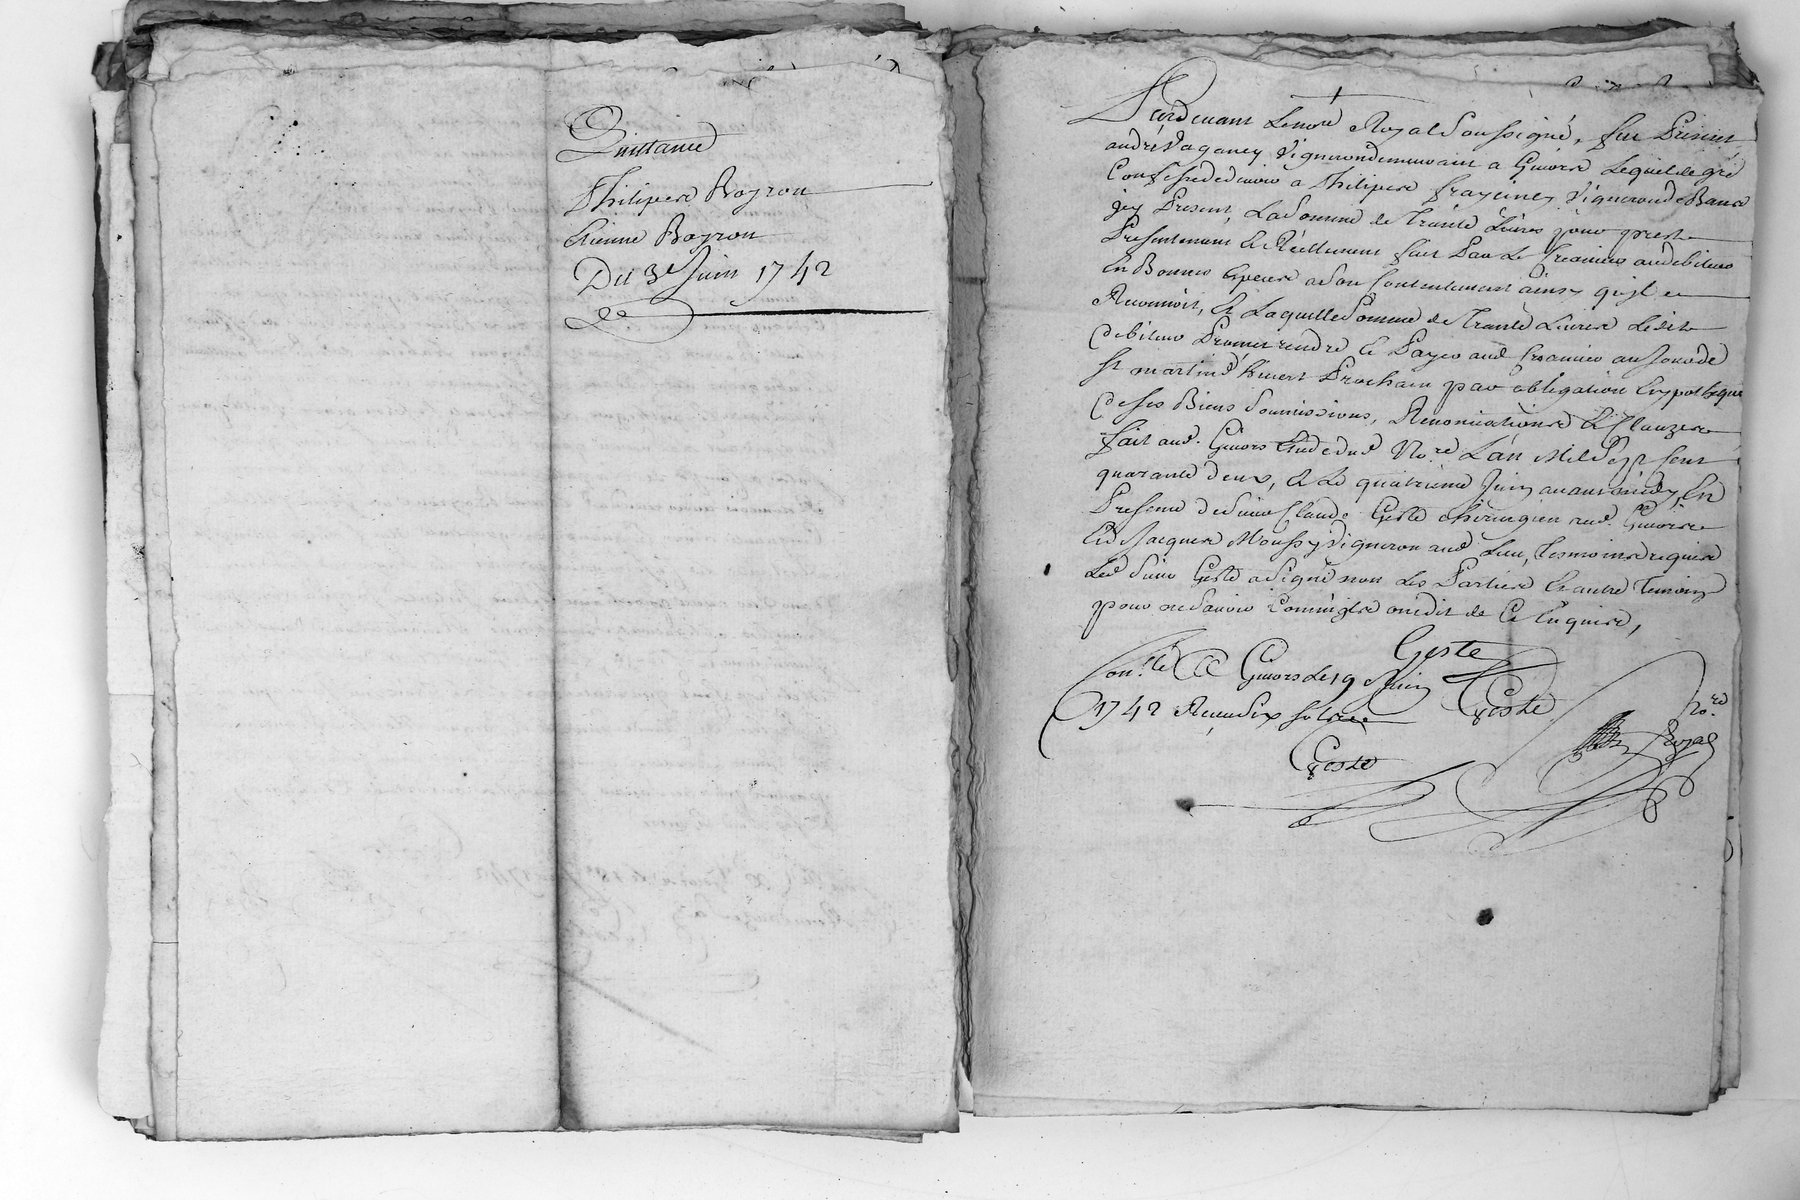 Quittance
Philipere Boyron
Etienne Boyron
Du 3e Juin 1742
Pardevant Lenore Royal Soussigné, fut Présent
andré Vaganey Vigneron demeurant a Givors Lequel de gré
Confesse de devoir a Philipere frayeiney Vigneron de
Present, La Somme de Trante Livres pour prest
Presentement et Réellement fait Par Le Creancier audebiteur
En Bonnes Especes a Son Contentement ainsy qu'jl
Reconnoit, Et Laquelle Somme de Trante Livres Ledit
debiteur Promet rendre Et Payer aud Creancier au Jour de
St martin d'hivert Prochain par obligation hypotheque
de ses Biens Soumissions, Renonciations et Clauzes
fait aud. Givors Etude dud No.re L'an Mil Sept Cent
quarante deux, et Le quatrieme Juin avant midy, En
Presence de Sieur Claude Geste chirurgien aud. Givors
Et Jacques Moussy Vigneron aud Lieu, Tesmoins requis
Led Sieur Geste a Signé non Les Parties Et autre Temoin
pour ne Scavoir Comm'jls ont dit de Ce Enquis,
Geste
Con.llé A Givors Le 19 Juin
1742 Receu Six Sols
Geste
No.re
Royal